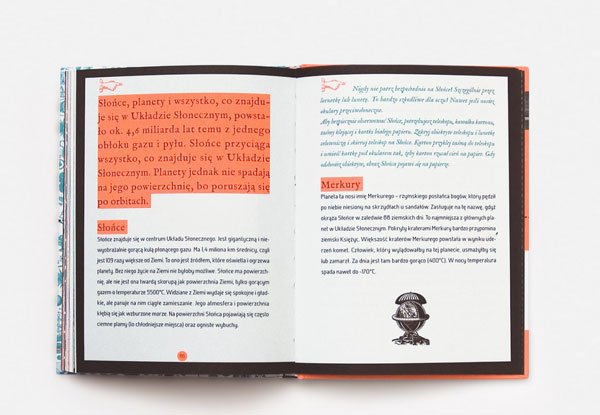 Słońce, planety i wszystko, co znajdu-
je się w Układzie Słonecznym, powsta-
ło ok. 4,6 miliarda lat temu z jednego
obłoku gazu i pyłu. Słońce przyciąga
wszystko, co znajduje się w Układzie
Słonecznym. Planety jednak nie spadają
na jego powierzchnię, bo poruszają się
po orbitach.
Słońce
Słońce znajduje się w centrum Układu Słonecznego. Jest gigantyczną i nie-
wyobrażalnie gorącą kulą płonącego gazu. Ma 1,4 miliona km średnicy, czyli
jest 109 razy większe od Ziemi. To ono jest źródłem, które oświetla i ogrzewa
planety. Bez niego życie na Ziemi nie byłoby możliwe. Słońce ma powierzch-
nię, ale nie jest ona twardą skorupą jak powierzchnia Ziemi, tylko gorącym
gazem o temperaturze 5500°C. Widziane z Ziemi wydaje się spokojne i gład-
kie, ale panuje na nim ciągłe zamieszanie. Jego atmosfera i powierzchnia
kłębią się jak wzburzone morze. Na powierzchni Słońca pojawiają się często
ciemne plamy (to chłodniejsze miejsca) oraz ogniste wybuchy.
Nigdy nie patrz bezpośrednio na Słońce! Szczególnie przez
lunetkę lub lunetę. To bardzo szkodliwe dla oczu! Nawet jeśli nosisz
okulary przeciwsłoneczne.
Aby bezpiecznie obserwować Słońce, potrzebujesz teleskopu, kawałka kartonu,
taśmy klejącej i kartki białego papieru. Zakryj obiektyw teleskopu i lunetkę
celowniczą i skieruj teleskop na Słońce. Karton przyklej taśmą do teleskopu
i umieść kartkę pod okularem tak, żeby karton rzucał cień na papier. Gdy
odsłonisz obiektyw, obraz Słońca pojawi się na papierze.
Merkury
Planeta ta nosi imię Merkurego – rzymskiego posłańca bogów, który pędził
po niebie niesiony na skrzydłach u sandałów. Zasługuje na tę nazwę, gdyż
okrąża Słońce w zaledwie 88 ziemskich dni. To najmniejsza z głównych pla-
net w Układzie Słonecznym. Pokryty kraterami Merkury bardzo przypomina
ziemski Księżyc. Większość kraterów Merkurego powstała w wyniku ude-
rzeń komet. Człowiek, który wylądowałby na tej planecie, usmażyłby się
lub zamarzł. Za dnia jest tam bardzo gorąco (400°C). W nocy temperatura
spada nawet do -170°C.